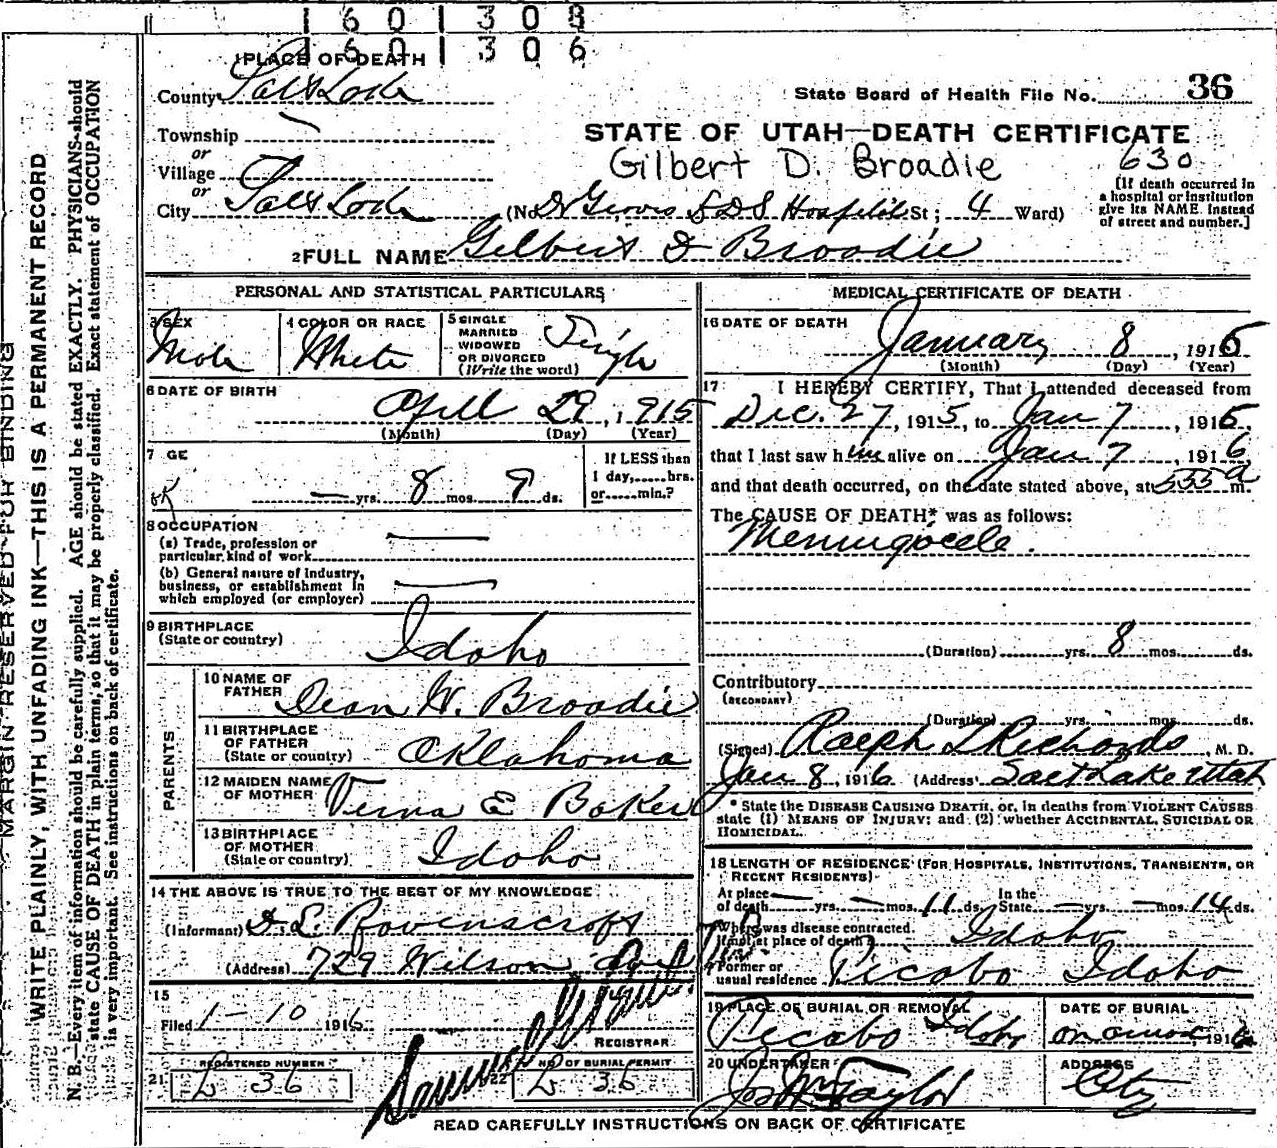 1601308
1601306
1 PLACE OF DEATH
County Salt Lake
State Board of Health File No. 36
Township
or
Village
or
City Salt Lake
STATE OF UTAH—DEATH CERTIFICATE
Gilbert D. Broadie 630
[If death occurred in
a hospital or institution
give its NAME instead
of street and number.]
(No. Dr Groves L D S Hospital St; 4 Ward)
2 FULL NAME Gilbert D Broadie
PERSONAL AND STATISTICAL PARTICULARS
3 SEX
Male
4 COLOR OR RACE
White
5 SINGLE
MARRIED
WIDOWED
OR DIVORCED
(Write the word)
Single
6 DATE OF BIRTH
April 29, 1915
(Month) (Day) (Year)
7 GE
— yrs. 8 mos. 9 ds.
If LESS than
1 day,......hrs.
or......min.?
8 OCCUPATION
(a) Trade, profession or
particular kind of work
(b) General nature of industry,
business, or establishment in
which employed (or employer)
9 BIRTHPLACE
(State or country)
Idaho
PARENTS
10 NAME OF
FATHER
Dean W. Broadie
11 BIRTHPLACE
OF FATHER
(State or country)
Oklahoma
12 MAIDEN NAME
OF MOTHER
Verna E Baker
13 BIRTHPLACE
OF MOTHER
(State or country)
Idaho
14 THE ABOVE IS TRUE TO THE BEST OF MY KNOWLEDGE
(Informant) D. L. Ravenscroft
(Address) 729 Wilson
15
Filed 1-10 1916
REGISTRAR
REGISTERED NUMBER
21 L 36
22 NO OF BURIAL PERMIT
L 36
MEDICAL CERTIFICATE OF DEATH
16 DATE OF DEATH
January 8, 1916
(Month) (Day) (Year)
17 I HEREBY CERTIFY, That I attended deceased from
Dec. 27, 1915, to Jan 7, 1916,
that I last saw h im alive on Jan 7, 1916
and that death occurred, on the date stated above, at 535 a m.
The CAUSE OF DEATH* was as follows:
Meningocele.
(Duration) yrs. 8 mos. ds.
Contributory
(SECONDARY)
(Duration) yrs. mos. ds.
(Signed) Ralph T Richards, M. D.
Jan 8, 1916 (Address) Salt Lake Utah
* State the DISEASE CAUSING DEATH, or, in deaths from VIOLENT CAUSES
state (1) MEANS OF INJURY; and (2) whether ACCIDENTAL, SUICIDAL OR
HOMICIDAL.
18 LENGTH OF RESIDENCE (FOR HOSPITALS, INSTITUTIONS, TRANSIENTS, OR
RECENT RESIDENTS)
At place
of death — yrs. — mos. 11 ds.
In the
State — yrs. — mos. 14 ds.
Where was disease contracted,
if not at place of death? Idaho
Former or
usual residence Picabo Idaho
19 PLACE OF BURIAL OR REMOVAL
Picabo Idaho
DATE OF BURIAL
1916
20 UNDERTAKER
Jos Wm Taylor
ADDRESS
City
READ CAREFULLY INSTRUCTIONS ON BACK OF CERTIFICATE
MARGIN RESERVED FOR BINDING
WRITE PLAINLY, WITH UNFADING INK—THIS IS A PERMANENT RECORD
N. B.—Every item of information should be carefully supplied. AGE should be stated EXACTLY. PHYSICIANS should
state CAUSE OF DEATH in plain terms, so that it may be properly classified. Exact statement of OCCUPATION
is very important. See instructions on back of certificate.